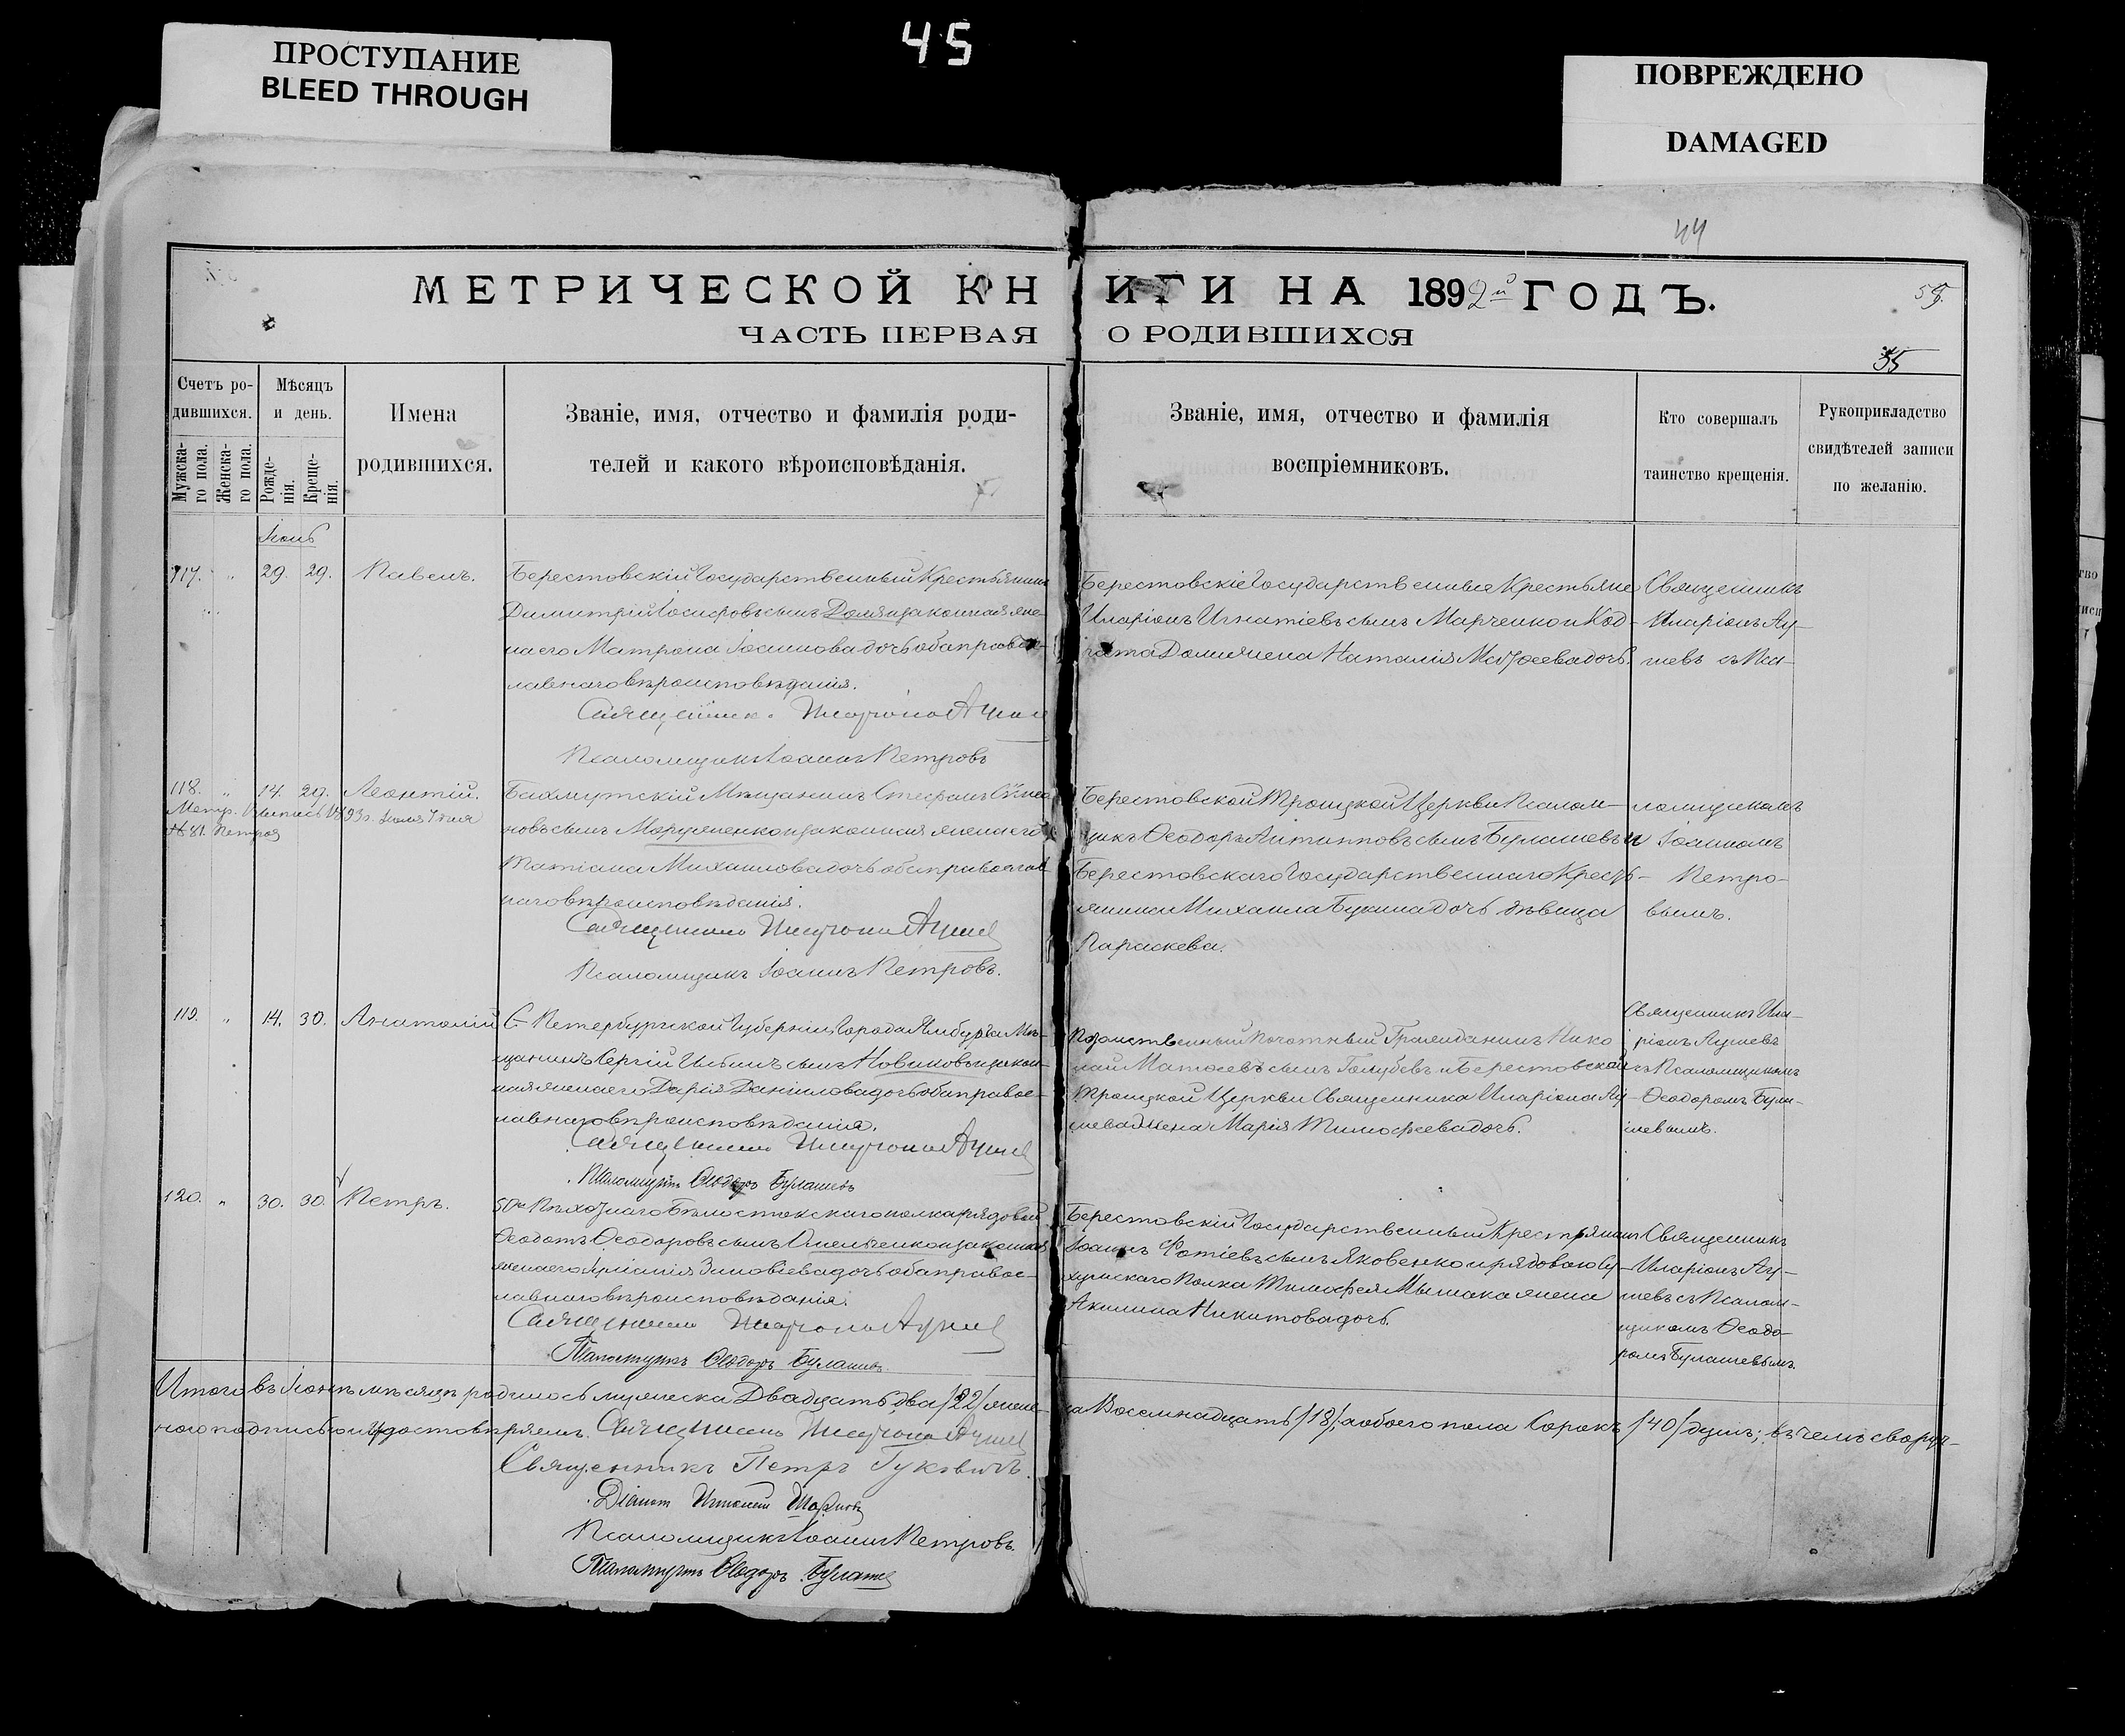 45
ПРОСТУПАНИЕ
BLEED THROUGH
ПОВРЕЖДЕНО
DAMAGED
44
МЕТРИЧЕСКОЙ КНИГИ НА 1892й ГОДЪ.
59.
ЧАСТЬ ПЕРВАЯ О РОДИВШИХСЯ
35
Счетъ ро-
дившихся.
Мужска-
го пола.
Женска-
го пола.
Мѣсяцъ
и день.
Рожде-
нія.
Креще-
нія.
Имена
родившихся.
Званіе, имя, отчество и фамилія роди-
телей и какого вѣроисповѣданія.
Званіе, имя, отчество и фамилія
воспріемниковъ.
Кто совершалъ
таинство крещенія.
Рукоприкладство
свидѣтелей записи
по желанію.
Іюнь
117. " 29. 29. Павелъ.
Берестовскій Государственный Крестьянинъ
Димитрій Іосифовъ сынъ Доля и законная же-
на его Матрона Іоаннова дочь оба правос-
лавнаго вѣроисповѣданія.
Священникъ Иларіонъ
Псаломщикъ Іоаннъ Петровъ
Берестовскіе Государственные Крестьяне
Иларіонъ Игнатіевъ сынъ Марченко и
жена Наталія дочь.
Священникъ
Иларіонъ Ау-
шевъ съ Пса-
118. " 14. 29. Леонтій.
Метр. Выпись 1893 г. Іюля 7 дня
№ 81. Петровъ
Бахмутскій Мѣщанинъ Стефанъ Симео-
новъ сынъ Марущенко и законная жена его
Татіана Михаилова дочь оба православ-
наго вѣроисповѣданія.
Священникъ Иларіонъ
Псаломщикъ Іоаннъ Петровъ.
Берестовской Троицкой Церкви Псалом-
щикъ Ѳеодоръ Антиповъ сынъ Булашевъ и
Берестовскаго Государственнаго Кресть-
янина Михаила Букина дочь дѣвица
Параскева.
ломщикомъ
Іоанномъ
Петро-
вымъ.
119. " 14. 30. Анатолій
С.-Петербургской Губерніи, Города Ямбурга Мѣ-
щанинъ Сергій Ильинъ сынъ Новиковъ и закон-
ная жена его Дарія Даніилова дочь оба правос-
лавнаго вѣроисповѣданія.
Священникъ Иларіонъ
Псаломщикъ Ѳеодоръ Булашевъ
Потомственный Почотный Гражданинъ Нико-
лай Матѳеевъ сынъ Голубевъ и Берестовской
Троицкой Церкви Священника Иларіона Ау-
шева жена Марія Тимоѳеева дочь.
Священникъ Ила-
ріонъ Аушевъ
съ Псаломщикомъ
Ѳеодоромъ Була-
шевымъ.
120. " 30. 30. Петръ.
Пѣхотнаго Бѣлостокскаго полка рядовой
Ѳеодотъ Ѳеодоровъ сынъ Омельченко и законная
жена его Зиновіева дочь оба правос-
лавнаго вѣроисповѣданія.
Священникъ Иларіонъ
Псаломщикъ Ѳеодоръ Булашевъ
Берестовскій Государственный Крестьянинъ
Іоаннъ Фотіевъ сынъ Яковенко и рядоваго Су-
хумскаго Полка Тимоѳея жена
Акилина Никитова дочь.
Священникъ
Иларіонъ Ау-
шевъ съ Псалом-
щикомъ Ѳеодо-
ромъ Булашевымъ.
Итого въ Іюнѣ мѣсяцѣ родилось мужеска Двадцать два /22/ женс-
ка Восемнадцать /18/, а обоего пола Сорокъ /40/ душъ; въ чемъ своруч-
ною подписью и удостовѣряемъ. Священникъ Иларіонъ
Священникъ Петръ
Діаконъ
Псаломщикъ Іоаннъ Петровъ.
Псаломщикъ Ѳеодоръ Булашевъ